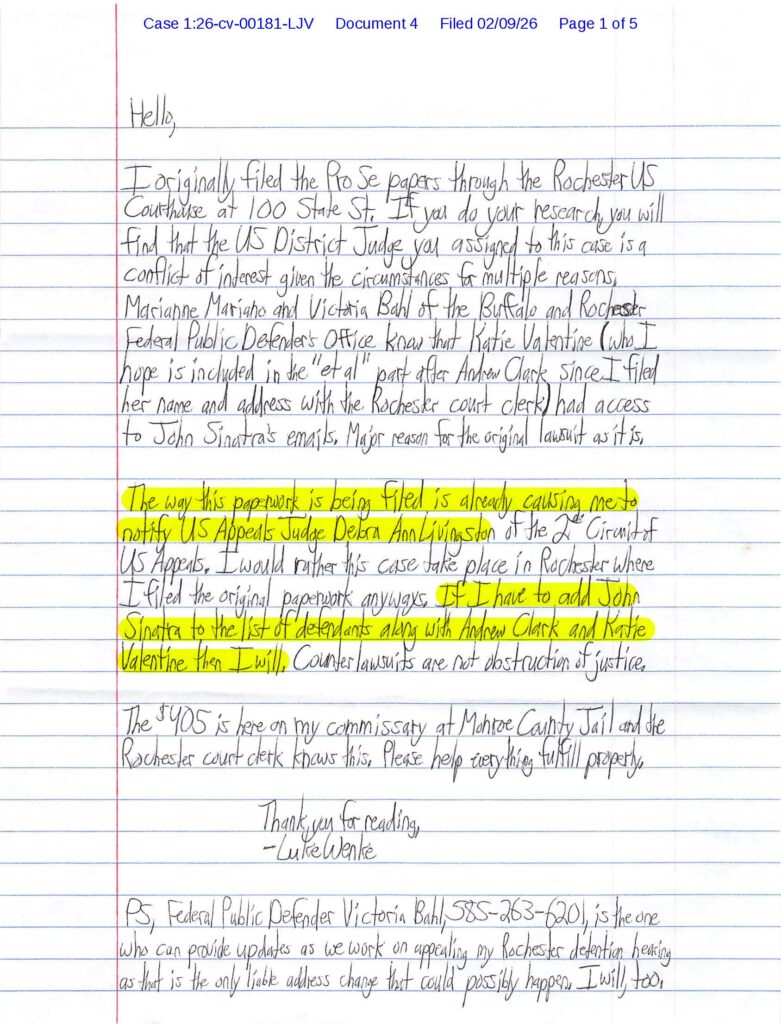 Case 1:26-cv-00181-LJV Document 4 Filed 02/09/26 Page 1 of 5
Hello,
I originally filed the Pro Se papers through the Rochester US
Courthouse at 100 State St. If you do your research, you will
find that the US District Judge you assigned to this case is a
conflict of interest given the circumstances for multiple reasons.
Marianne Mariano and Victoria Bahl of the Buffalo and Rochester
Federal Public Defender's Office know that Katie Valentine (who I
hope is included in the "et al" part after Andrew Clark since I filed
her name and address with the Rochester court clerk) had access
to John Sinatra's emails. Major reason for the original lawsuit as it is.
The way this paperwork is being filed is already causing me to
notify US Appeals Judge Debra Ann Livingston of the 2nd Circuit of
US Appeals. I would rather this case take place in Rochester where
I filed the original paperwork anyways. If I have to add John
Sinatra to the list of defendants along with Andrew Clark and Katie
Valentine then I will. Counter lawsuits are not obstruction of justice.
The $405 is here on my commissary at Monroe County Jail and the
Rochester court clerk knows this. Please help everything fulfill properly.
Thank you for reading,
-Luke Wenke
PS, Federal Public Defender Victoria Bahl, 585-263-6201, is the one
who can provide updates as we work on appealing my Rochester detention hearing
as that is the only liable address change that could possibly happen. I will, too.